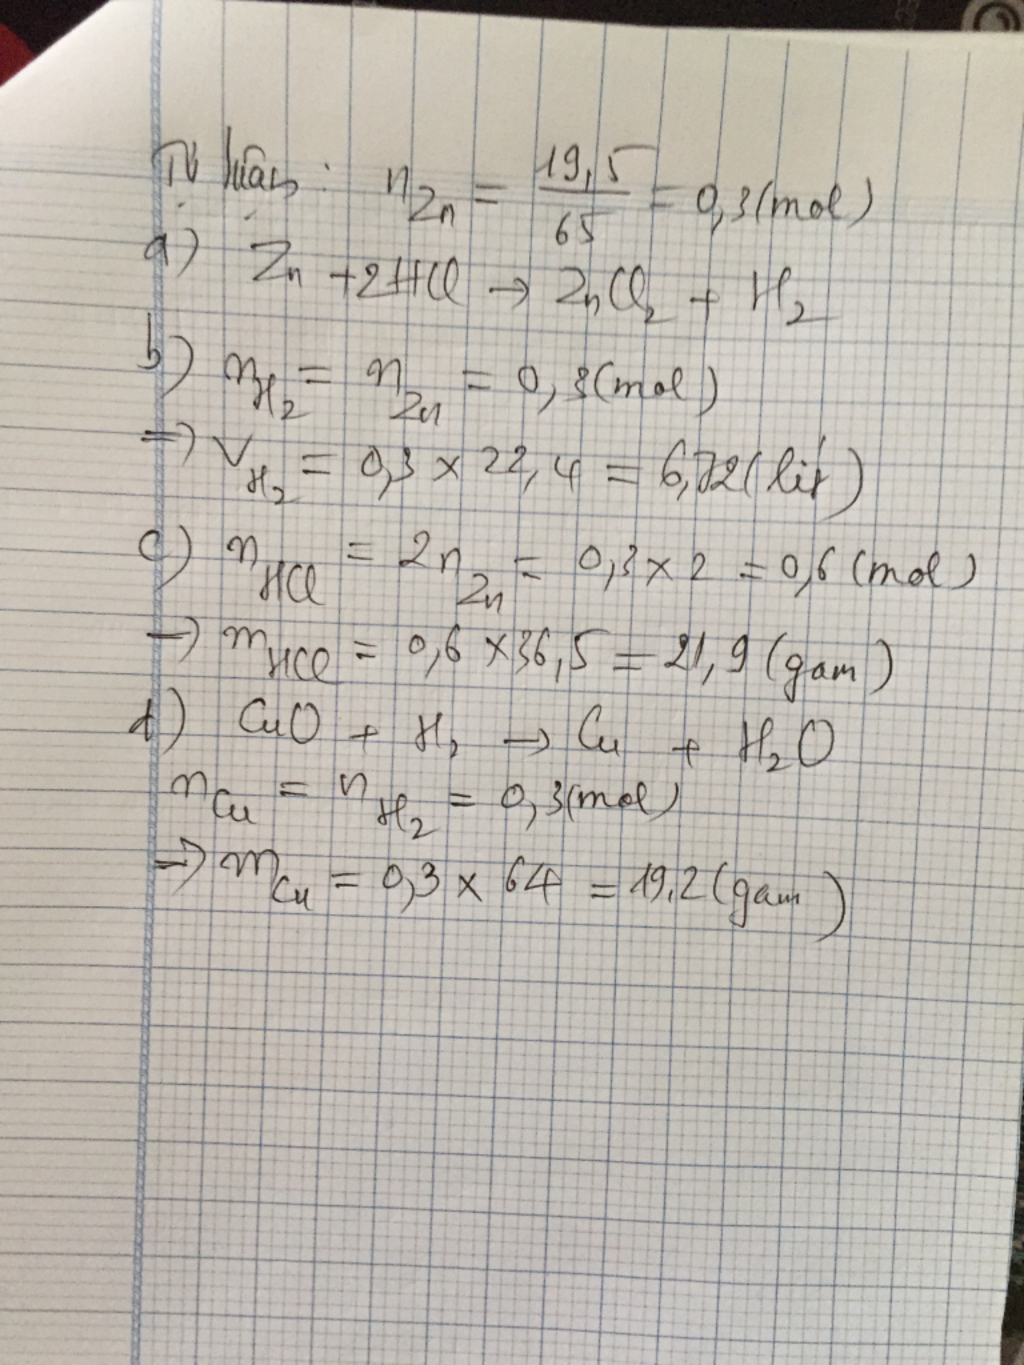 Tự luận: n Zn = 19,5/65 = 0,3(mol)
a) Zn + 2HCl → ZnCl2 + H2
b) n H2 = n Zn = 0,3(mol)
=> V H2 = 0,3 x 22,4 = 6,72 (lít)
c) n HCl = 2n Zn = 0,3 x 2 = 0,6 (mol)
→ m HCl = 0,6 x 36,5 = 21,9 (gam)
d) CuO + H2 → Cu + H2O
n Cu = n H2 = 0,3(mol)
=> m Cu = 0,3 x 64 = 19,2 (gam)